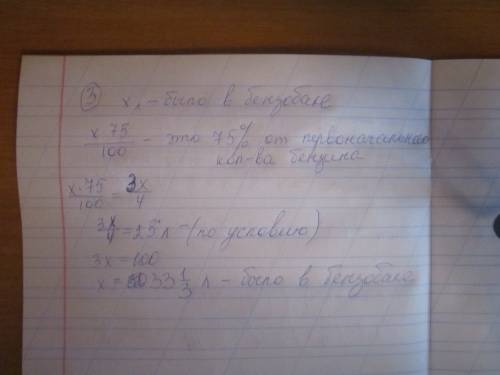 ③ x л – было в бензобаке
x·75/100 – это 75% от первоначального
кол-ва бензина
x·75/100 = 3x/4
3x/4 = 25 л – (по условию)
3x = 100
x = 33 1/3 л – было в бензобаке